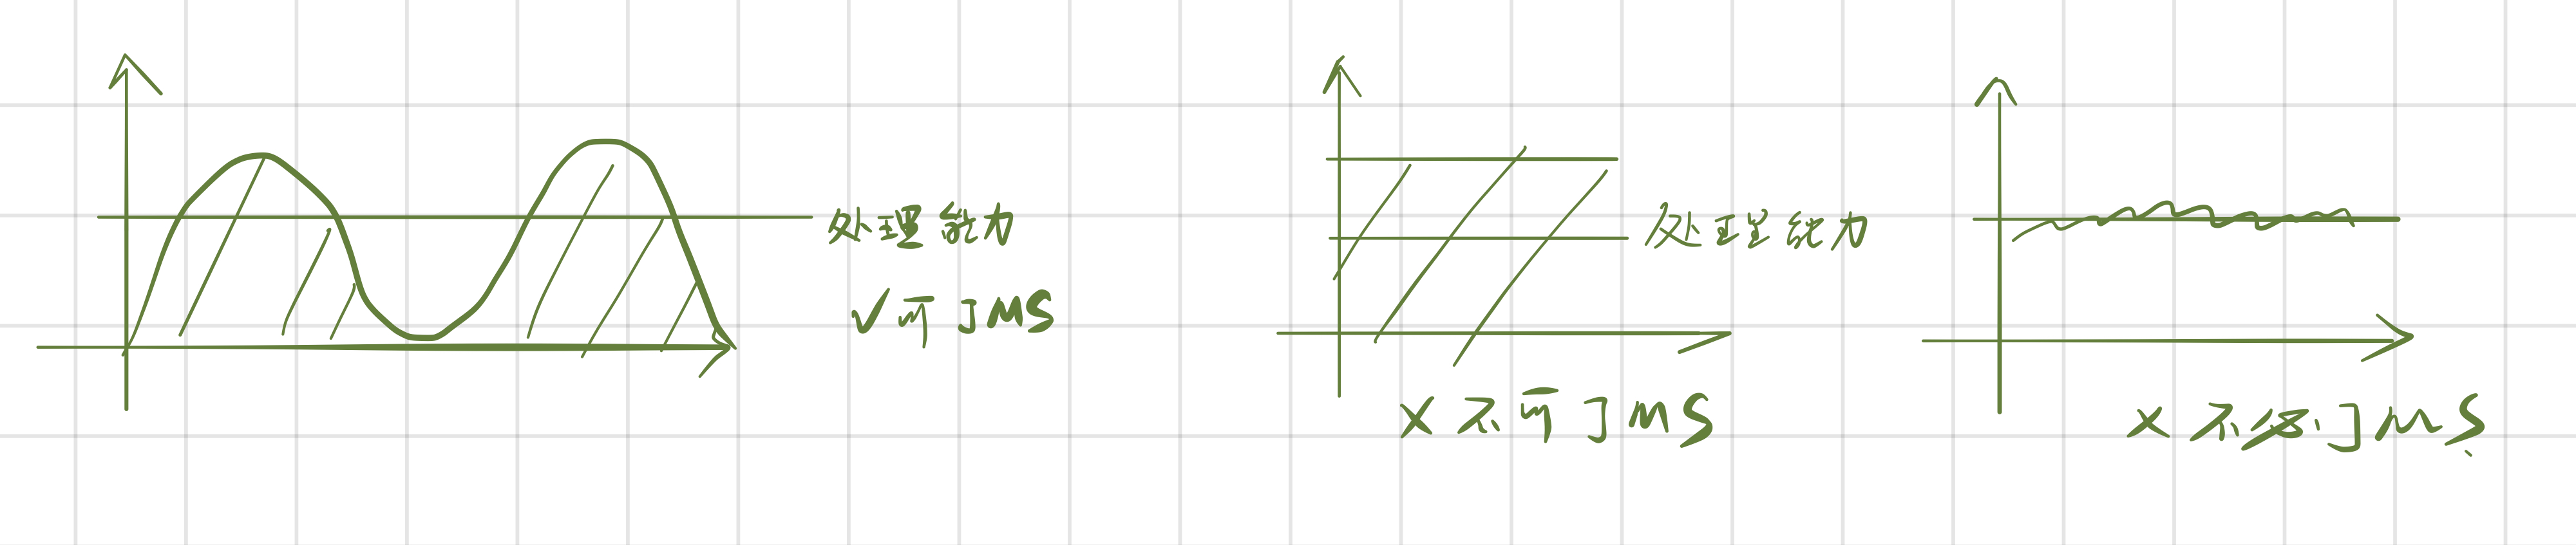 处理能力
√可JMS
处理能力
X不可JMS
X不必JMS